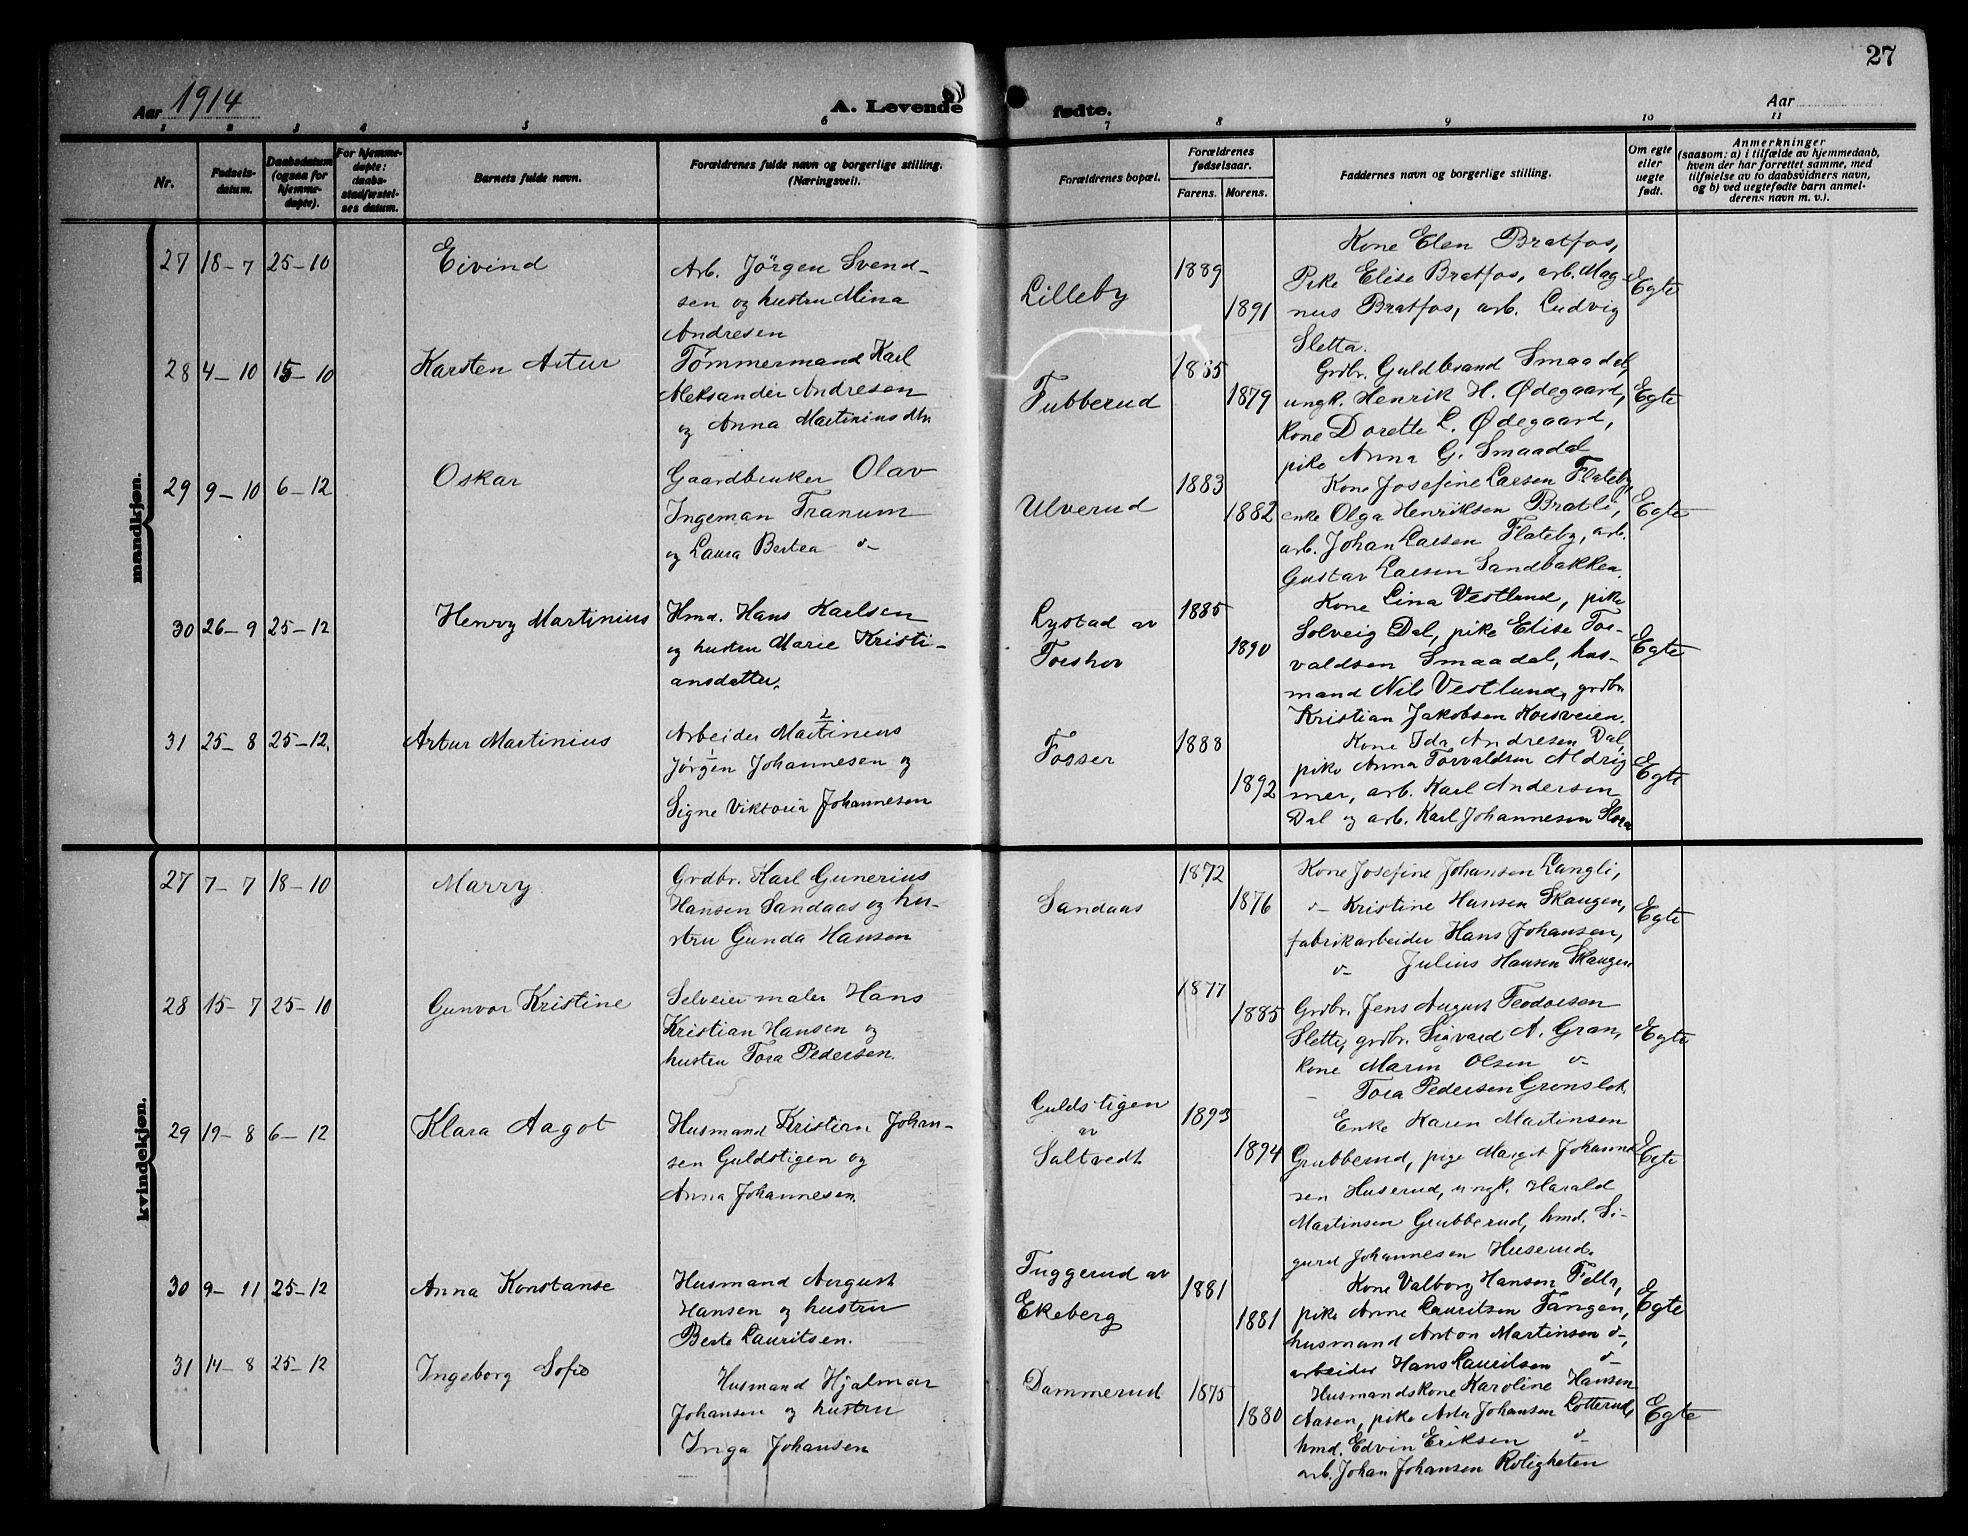 27
Aar 1914
A. Levende fødte.
Aar
1 2 3 4 5 6 7 8 9 10 11
Nr.
Fødsels-
datum.
Daabsdatum
(ogsaa for
hjemme-
døpte).
For hjemme-
døpte:
daabs-
stadfæstel-
ses datum.
Barnets fulde navn.
Forældrenes fulde navn og borgerlige stilling.
(Næringsvei).
Forældrenes bopæl.
Forældrenes
fødselsaar.
Farens. Morens.
Faddernes navn og borgerlige stilling.
Om egte
eller
uegte
født.
Anmerkninger
(saasom: a) i tilfælde av hjemmedaab,
hvem der har forrettet samme, med
tilføielse av to daabsvidners navn,
og b) ved uegtefødte barn anmel-
derens navn m. v.).
mandkjøn.
27 18-7 25-10 Eivind
Arb. Jörgen Svend-
sen og hustru Mina
Andresen
Lilleby
1889
1891
Kone Elen Bratfos,
Pike Elise Bratfos, arb. Mag-
nus Bratfos, arb. Ludvig
Sletta.
Egte
28 4-10 15-10 Karsten Artur
Tømmermand Karl
Aleksander Andresen
og Anna Martinius dtr.
Tubberud
1885
1879
Grdbr. Guldbrand Smaadal,
ungk. Henrik H. Ødegaard,
kone Dorette L. Ødegaard,
pike Anna G. Smaadal
Egte
29 9-10 6-12 Oskar
Gaardbruker Olav
Ingeman Tranum
og Laura Bertea d-
Ulverud
1883
1882
Kone Josefine Larsen Flateby,
enke Olga Henriksen Bratli,
arb. Johan Larsen Flateby, arb.
Gustav Larsen Sandbakken.
Egte
30 26-9 25-12 Henry Martinius
Hmd. Hans Karlsen
og hustru Marie Kristi-
ansdatter.
Lystad av
Toshov
1885
1890
Kone Lina Vestlund, pike
Solveig Dal, pike Elise Tor-
valdsen Smaadal, hus-
mand Nils Vestlund, grdbr.
Kristian Jakobsen Korsveien.
Egte
31 25-8 25-12. Artur Martinius
2
Arbeider Martinius
1
Jørgen Johannesen og
Signe Viktoria Johannesen
Fosser
1888
1892
Kone Ida Andresen Dal,
pike Anna Torvaldsen Aldrig
mer, arb. Karl Andersen
Dal og arb. Karl Johannesen Flora
Egte
kvindekjøn.
27 7-7 18-10 Marry
Grdbr. Karl Gunerius
Hansen Sandaas og hu-
stru Gunda Hansen
Sandaas
1872
1876
Kone Josefine Johansen Langli,
d- Kristine Hansen Skaugen,
fabrikarbeider Hans Johansen,
d- Julius Hansen Skaugen
Egte
28 15-7 25-10 Gunvor Kristine
Selveier maler Hans
Kristian Hansen og
hustru Tora Pedersen.
1877
1885
Grdbr. Jens August Teodorsen
Slette, grdbr. Sigvard A. Gran,
kone Marin Olsen d-
- Tora Pedersen Grenslet.
Egte
29 19-8 6-12 Klara Aagot
Husmand Kristian Johan-
sen Guldstigen og
Anna Johannesen.
Guldstigen
av
Saltvedt
1893
1894
Enke Karen Martinsen
Grubberud, pige Margit Johanne
sen Huserud, ungk. Harald
Martinsen Grubberud, hmd. Si-
gurd Johannesen Huserud.
Egte
30 9-11 25-12 Anna Konstanse
Husmand August
Hansen og hustru
Berte Lauritsen.
Tuggerud av
Ekeberg
1881
1881
Kone Valborg Hansen Fella,
pike Anne Lauritsen Tangen,
husmand Anton Martinsen d-,
arbeider Hans Lauritsen d-
Egte
31 14-8 25-12 Ingeborg Sofie
Husmand Hjalmar
Johansen og hustru
Inga Johansen
Dammerud
1875
1880
Husmandskone Karoline Hansen
Aasen, pike Asta Johansen Lotterud,
hmd. Edvin Eriksen d-
arb. Johan Johansen Roligheten
Egte